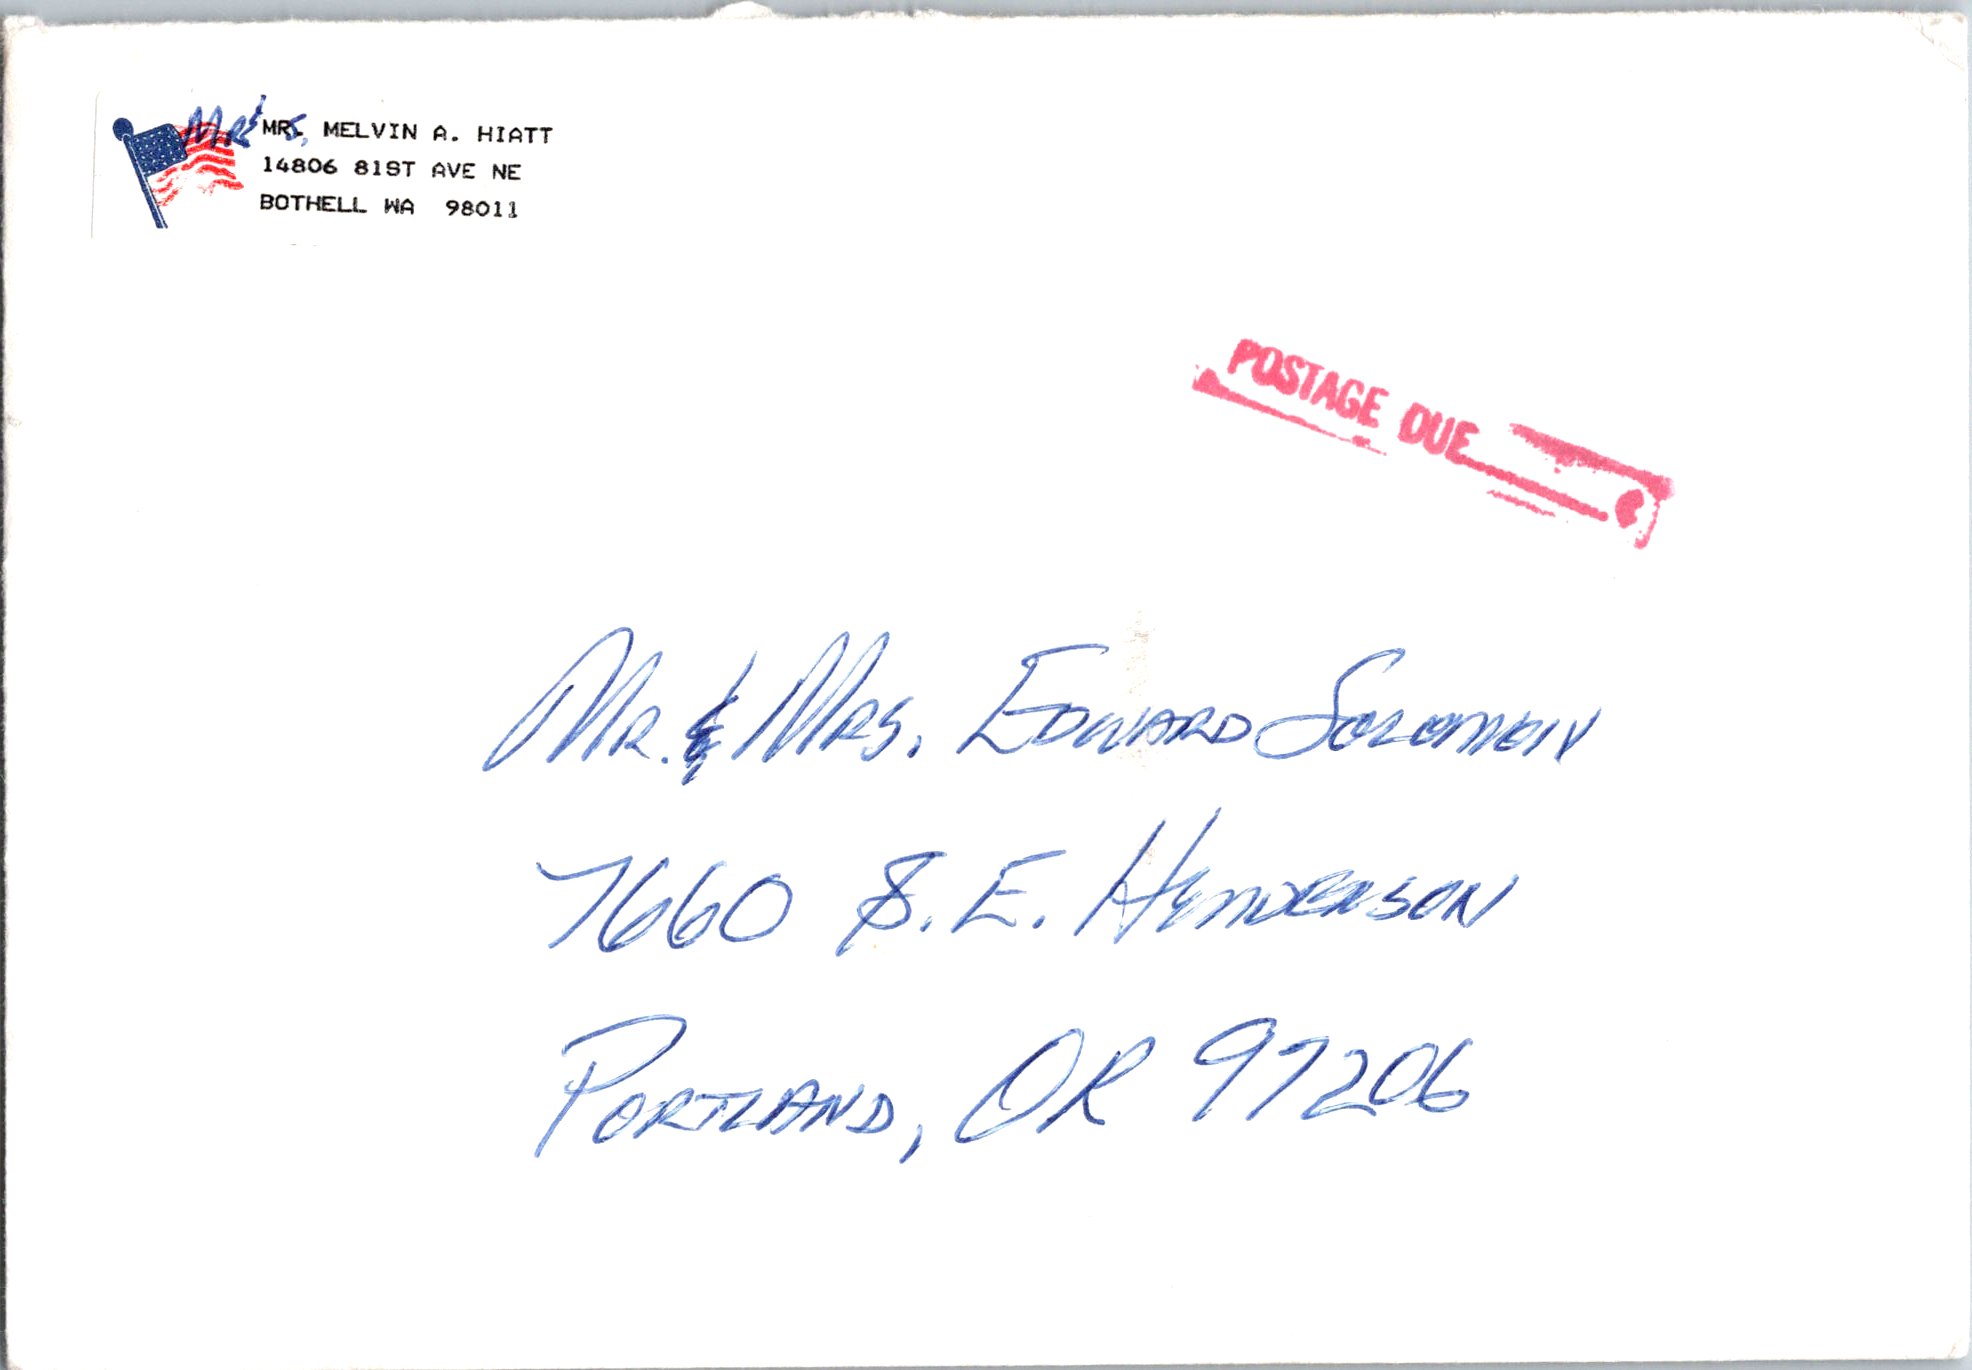 Mr & MRS. MELVIN A. HIATT
14806 81ST AVE NE
BOTHELL WA 98011
POSTAGE DUE
MR. & MRS. EDWARD SOLOMON
7660 S. E. HENDERSON
PORTLAND, OR 97206